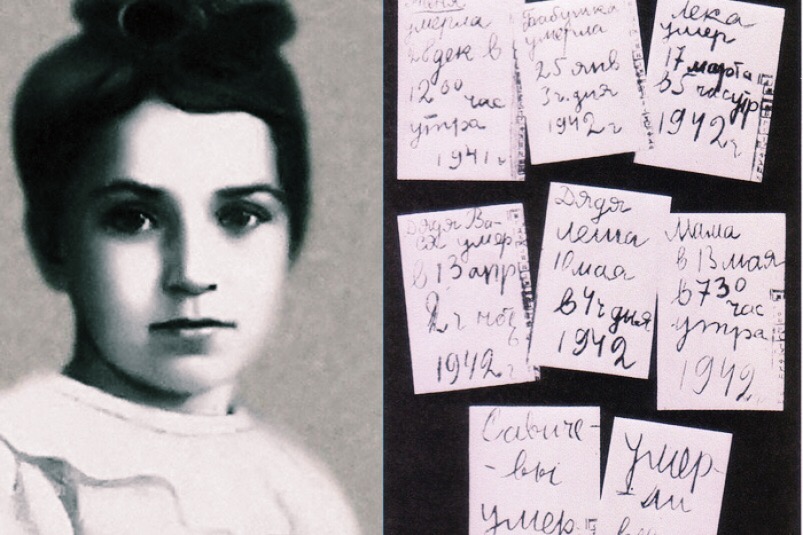 Женя
умерла
28 дек в
12 00 час
утра
1941 г
Бабушка
умерла
25 янв
3 ч. дня
1942 г
Лека
умер
17 марта
в 5 час утр
1942 г
Дядя Ва-
ся умер
в 13 апр
2 ч ноч
1942 г
Дядя
Леша
10 мая
в 4 ч дня
1942
Мама
в 13 мая
в 7 30
час
утра
1942
Савиче-
-вы
умер
умер-
-ли